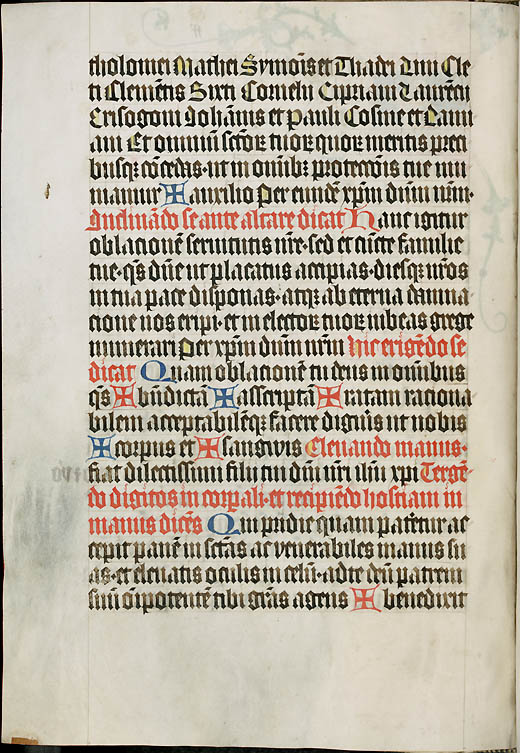 tholomei Mathei Symois et Thadei Lini Cle
ti Clemētis Sixti Cornelii Cipriani Laurētii
Crisogoni Johānis et Pauli Cosme et Dami
ani Et omniū sctōꝝ tuoꝝ quoꝝ meritis preci
busqꝫ cōcedas · ut in omībꝫ protectōis tue mu
niamur ✠ auxilio Per eundē xp̄m dn̄m nr̄m ·
Inclināndo se ante altare dicat Hanc igitur
oblacionē seruitutis nr̄e · sed et cūcte familie
tue · qs̄ dn̄e ut placatus accipias · diesqꝫ nr̄os
in tua pace disponas · atqꝫ ab eterna damna
cione nos eripi · et in electoꝝ tuoꝝ iubeas grege
numerari Per xp̄m dn̄m nr̄m Hic erigēdo se
dicat Quam oblacionē tu deus in omībus
qs̄ ✠ bn̄dictā ✠ asscriptā ✠ ratam rationa
bilem acceptabilēqꝫ facere dign̄is ut nobis
✠ corpus et ✠ sangwis Eleuando manus ·
fiat dilectissimi filii tui dn̄i nr̄i ih̄u xp̄i Tergē
do digitos in corꝑali · et recipiēdo hostiam in
manus dicēs Qui pridie quam pateretur ac
cepit panē in sctās ac venerabiles manus su
as · et eleuatis oculis in celū · ad te dm̄ patrem
suū oīpotentē tibi grās agens ✠ benedixit